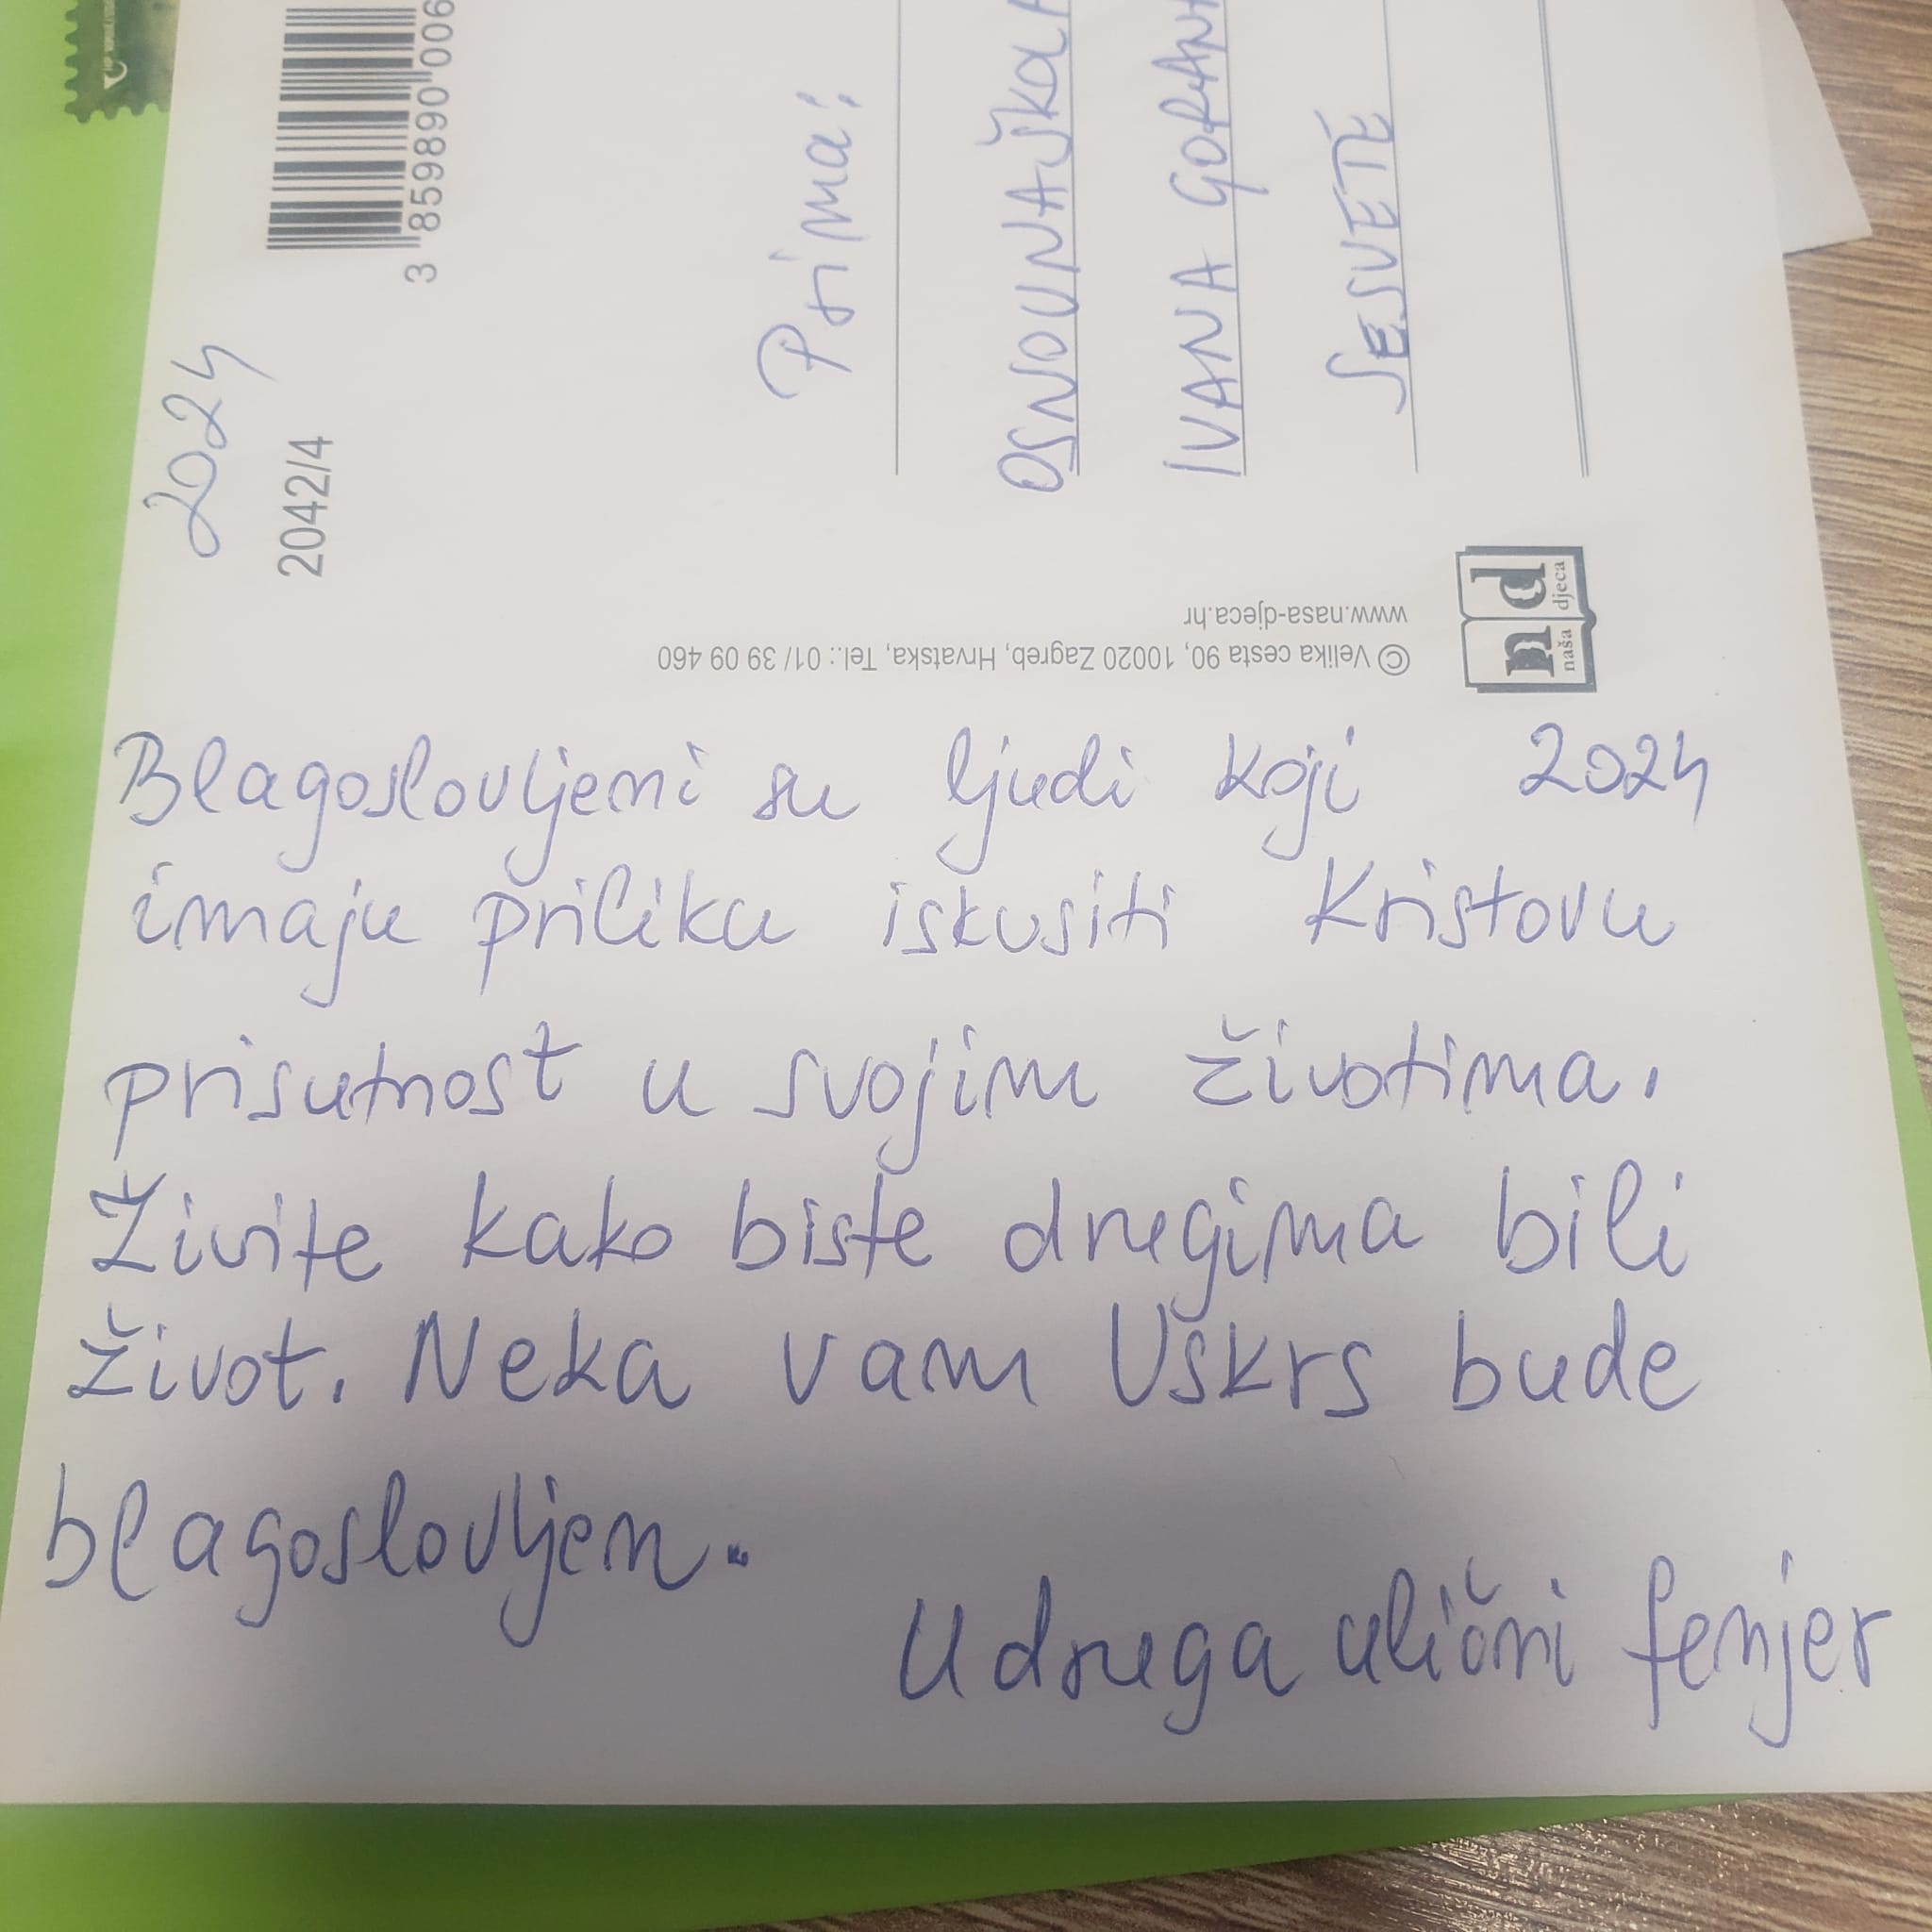 Blagoslovljeni su ljudi koji 2024
imaju priliku iskusiti Kristovu
prisutnost u svojim životima.
Živite kako biste drugima bili
život. Neka vam Uskrs bude
blagoslovljen.
Udruga ulični fenjer
2024
2042/4
3 859890 006
Prima:
OSNOVNA škola
IVANA GORAN
SESVETE
© Velika cesta 90, 10020 Zagreb, Hrvatska, Tel.: 01/ 39 09 460
www.nasa-djeca.hr
nd
naša djeca